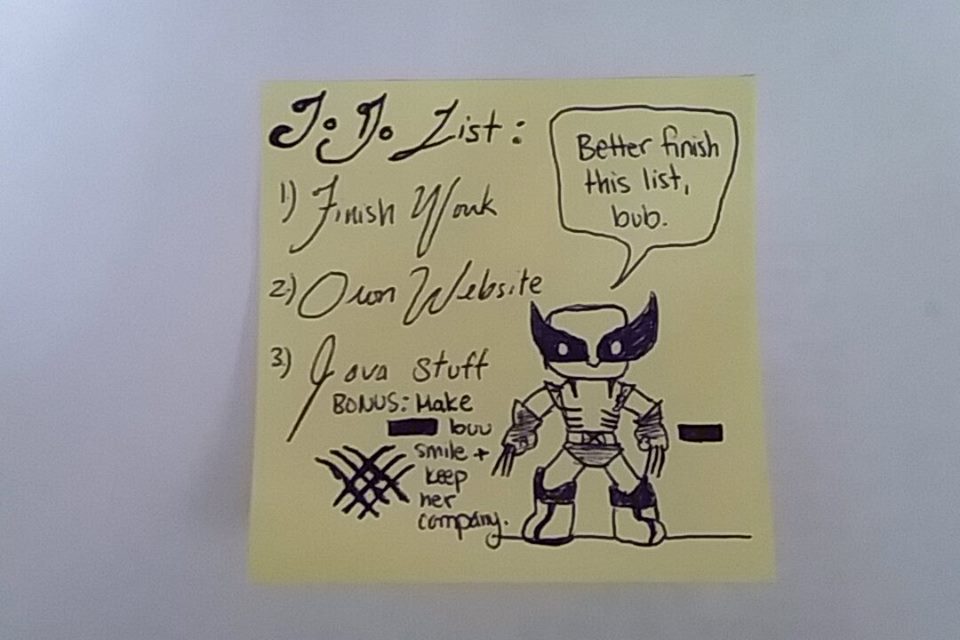 To Do List:
1) Finish Work
2.) Own Website
3.) Java Stuff
BONUS: Make
buu
smile +
keep
her
company.
Better finish
this list,
bub.